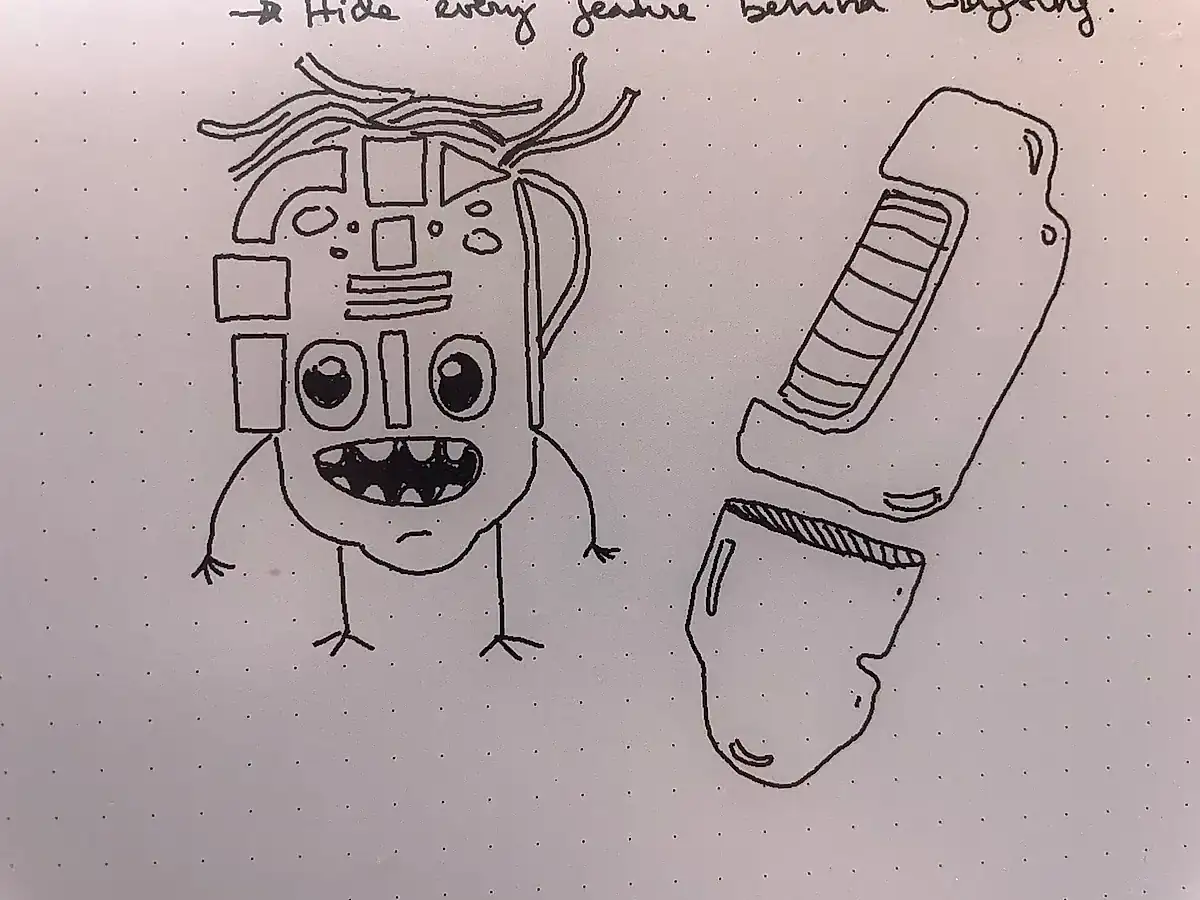 → Hide every feature behind